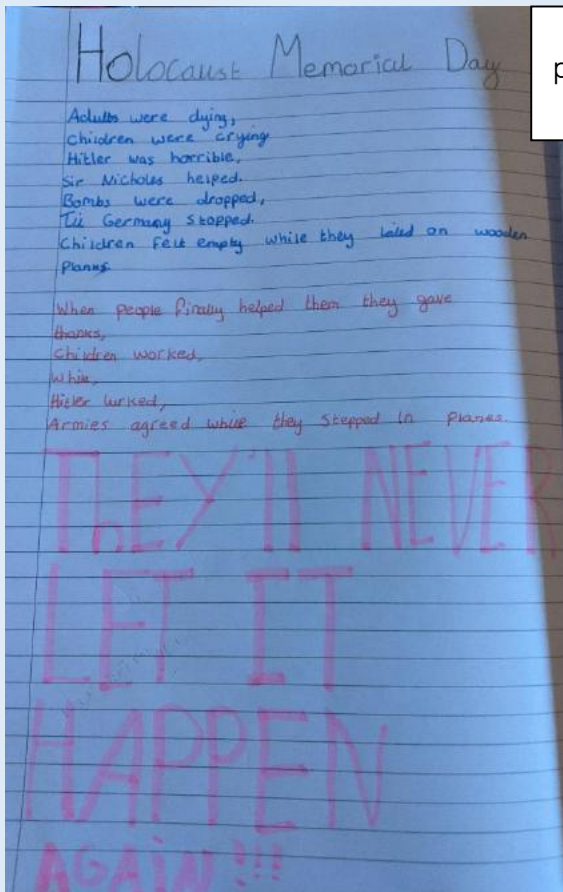 Holocaust Memorial Day
p
Adults were dying,
Children were crying
Hitler was horrible,
Sir Nicholas helped.
Bombs were dropped,
Till Germany stopped.
Children felt empty while they laied on wooden
Planks.
When people finally helped them they gave
thanks,
Children worked,
While,
Hitler lurked,
Armies agreed while they stepped in planes.
ThEY'll NEVER
LET IT
HAPPEN
AGAiN!!!